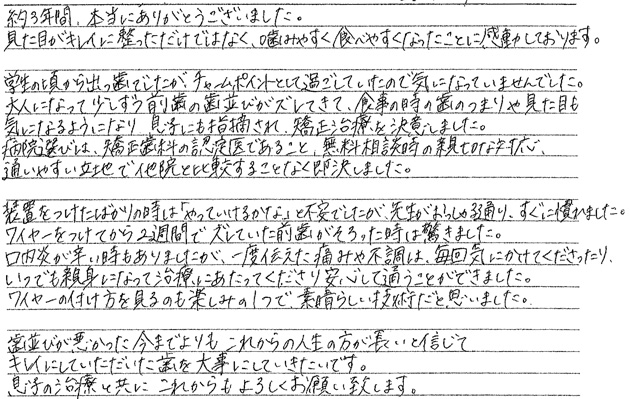 約3年間、本当にありがとうございました。
見た目がキレイに整っただけではなく、噛みやすく食べやすくなったことに感動しております。
学生の頃から出っ歯でしたが チャームポイントとして過ごしていたので気になっていませんでした。
大人になって少しずつ前歯の歯並びがズレてきて、食事の時の歯のつまりや見た目も
気になるようになり 息子にも指摘され、矯正治療を決意しました。
病院選びは、矯正歯科の認定医であること、無料相談時の親切な対応、
通いやすい立地で他院と比較することなく即決しました。
装置をつけたばかりの時は「やっていけるかな」と不安でしたが、先生がおっしゃる通り、すぐに慣れました。
ワイヤーをつけてから2週間でズレていた前歯がそろった時は驚きました。
口内炎が辛い時もありましたが、一度伝えた痛みや不調は、毎回気にかけてくださったり、
いつでも親身になって治療にあたってくださり安心して通うことができました。
ワイヤーの付け方を見るのも楽しみの1つで、素晴らしい技術だと思いました。
歯並びが悪かった今までよりも これからの人生の方が長いと信じて
キレイにしていただいた歯を大事にしていきたいです。
息子の治療と共に これからもよろしくお願い致します。